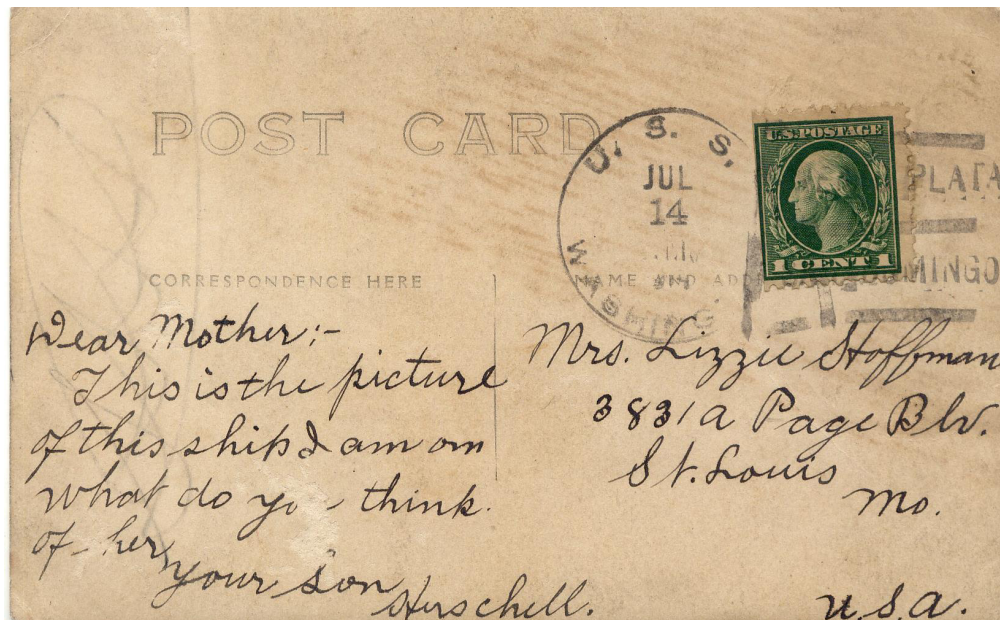 POST CARD
U. S. S.
JUL
14
WASHING
U.S. POSTAGE
1 CENT 1
PLATA
MINGO
CORRESPONDENCE HERE
NAME AND AD
Dear Mother:-
This is the picture
of this ship I am on
what do yo think
of her
your son
Herschell.
Mrs. Lizzie Hoffman
3831a Page Blv.
St. Louis
Mo.
U.S.A.